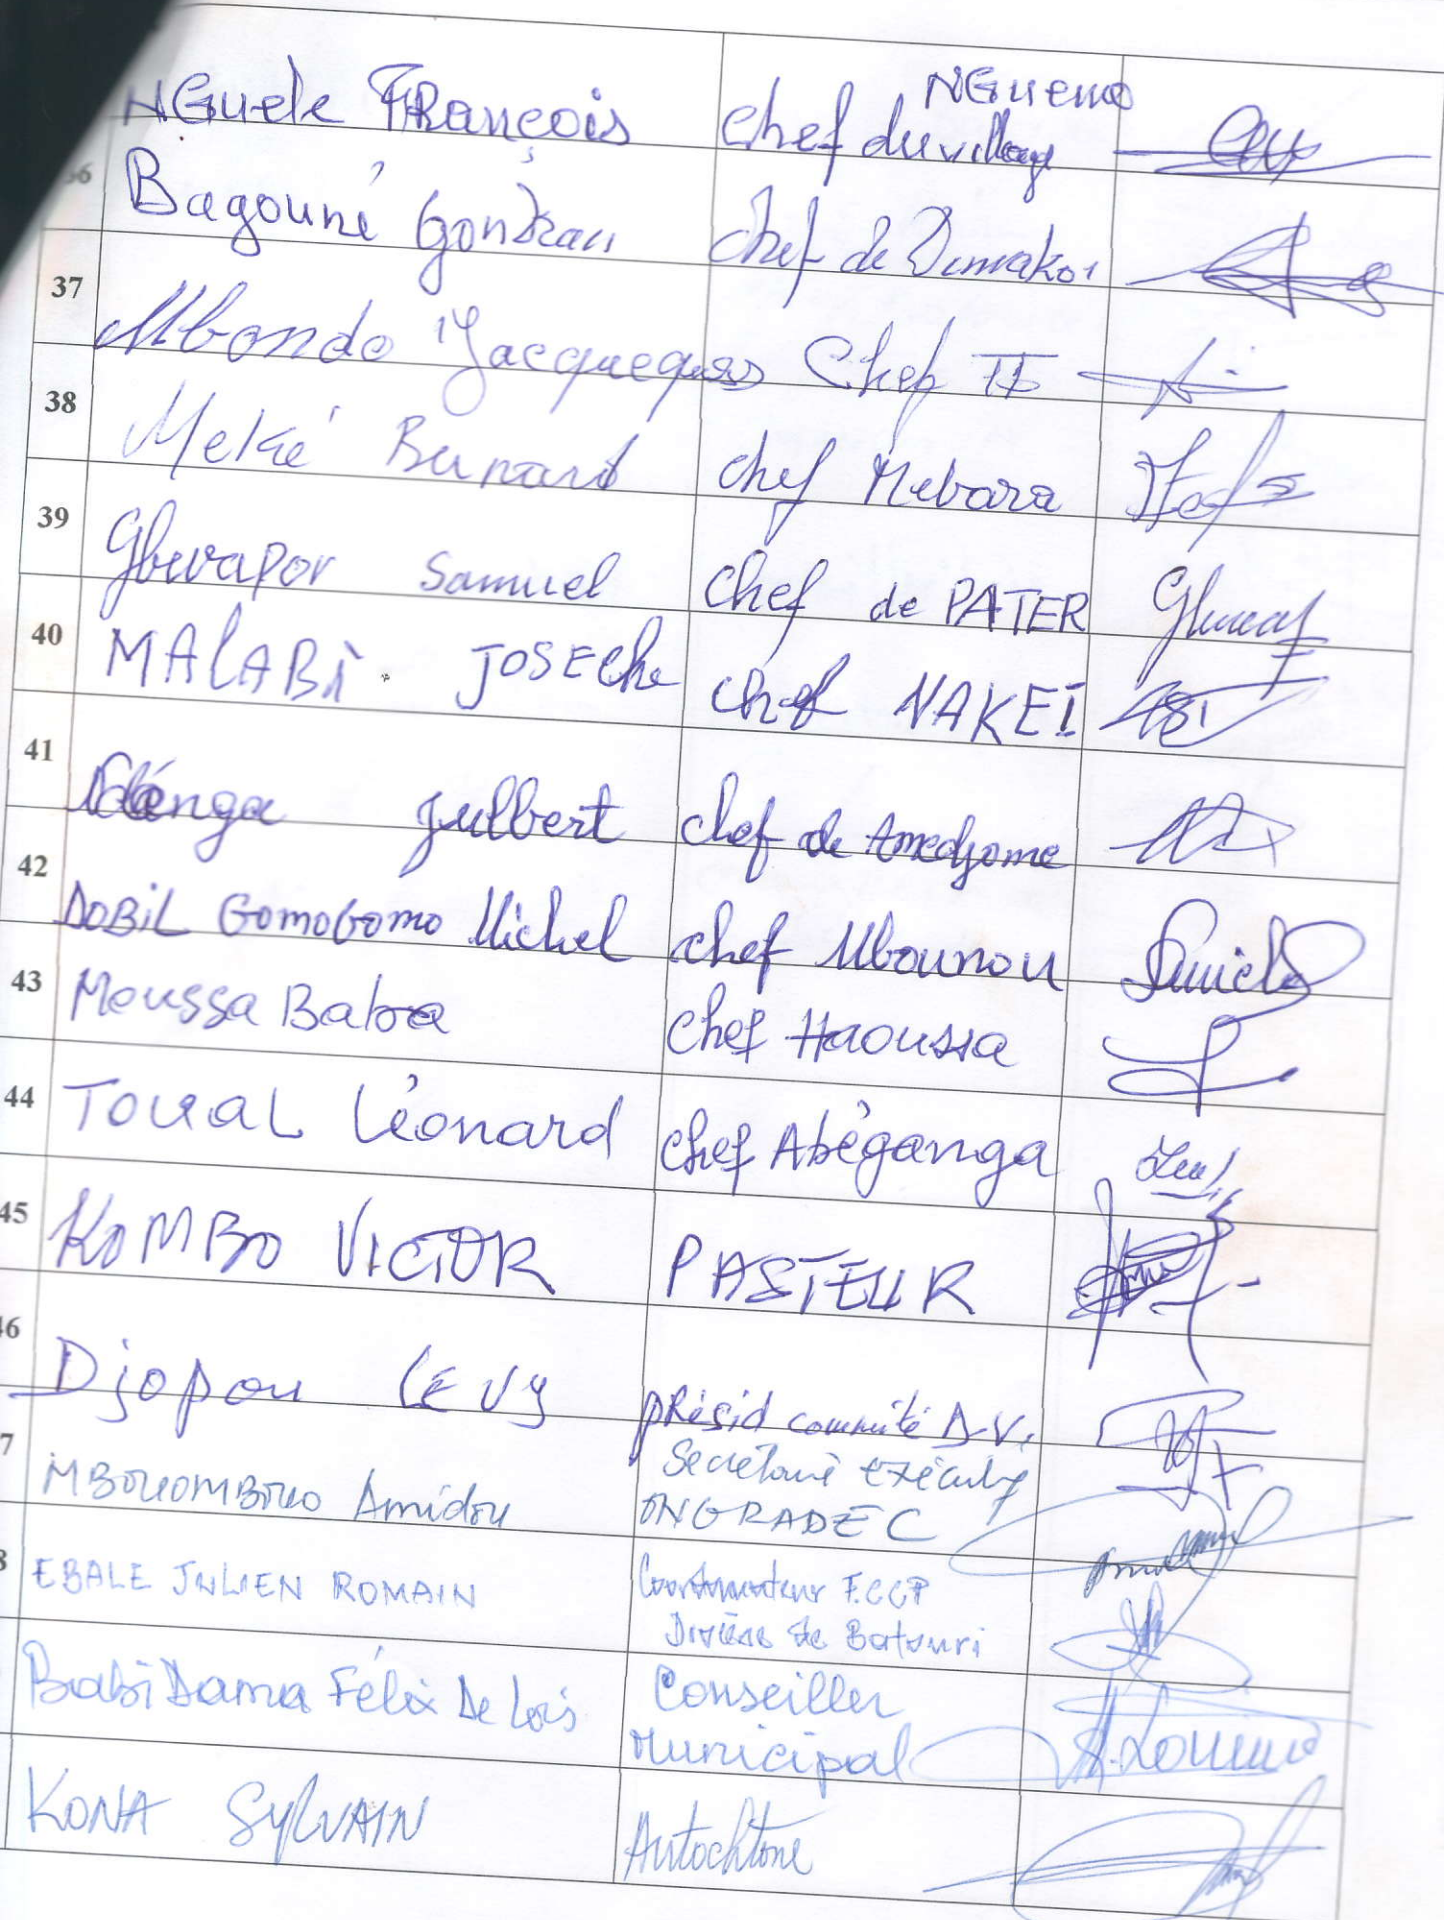 NGuele FRançois chef du village NGuemo
36 Bagouné Gonzran chef de Dimako1
37 Mbondo Jacquequess Chef II
38 Meké Bernard chef Mebara
39 Gbwapor Samuel chef de PATER
40 MALABi. JOSEChe chef NAKEI
41 Julbert chef de Amedjome
42 DOBiL Gomogomo Michel chef Mbounou
43 Moussa Baba chef Haoussa
44 ToUaL Léonard chef Abéganga
45 KOMBO VICTOR PASTEUR
46 Djopou LEVy présid committé D.V.
7 MBOUOMBOUO Amidou Secrétaire Exécutif
ONGRADEC
8 EBALE JULIEN ROMAIN Coordonnateur F.CCP
Diocèse de Batouri
Babi Dama Félix De Lois Conseiller
Municipal
KONA SYLVAIN Autochtone